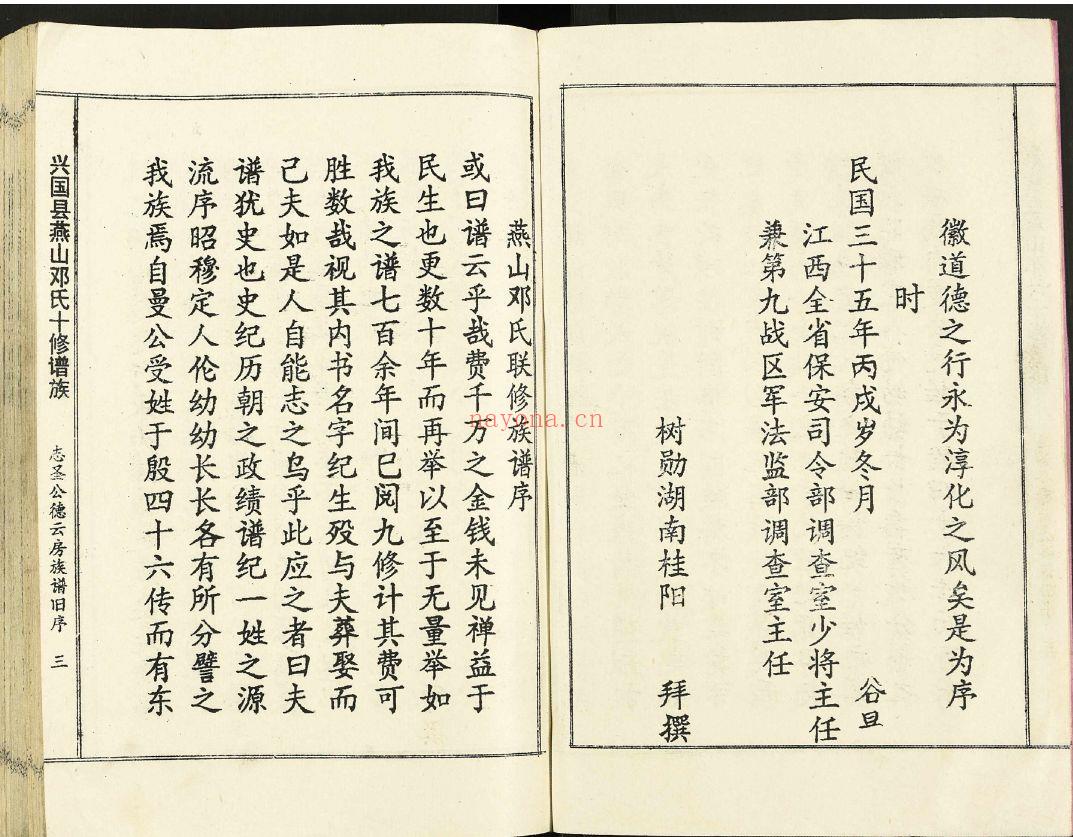 徽道德之行永为淳化之风矣是为序
时
民国三十五年丙戌岁冬月　谷旦
江西全省保安司令部调查室少将主任
兼第九战区军法监部调查室主任
树勋湖南桂阳　拜撰
燕山邓氏联修族谱序
或曰谱云乎哉费千万之金钱未见禅益于
民生也更数十年而再举以至于无量举如
我族之谱七百余年间已阅九修计其费可
胜数哉视其内书名字纪生殁与夫葬娶而
己夫如是人自能志之乌乎此应之者曰夫
谱犹史也史纪历朝之政绩谱纪一姓之源
流序昭穆定人伦幼幼长长各有所分譬之
我族焉自曼公受姓于殷四十六传而有东
兴国县燕山邓氏十修谱族
志圣公德云房族谱旧序　三
nayona.cn